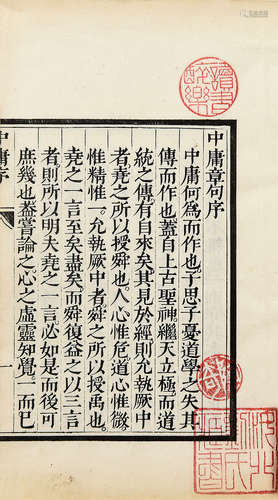 中庸章句序
中庸何為而作也子思子憂道學之失其
傳而作也蓋自上古聖神繼天立極而道
統之傳有自來矣其見於經則允執厥中
者堯之所以授舜也人心惟危道心惟微
惟精惟一允執厥中者舜之所以授禹也
堯之一言至矣盡矣而舜復益之以三言
者則所以明夫堯之一言必如是而後可
庶幾也蓋嘗論之心之虛靈知覺一而已
中庸序
一
讀書